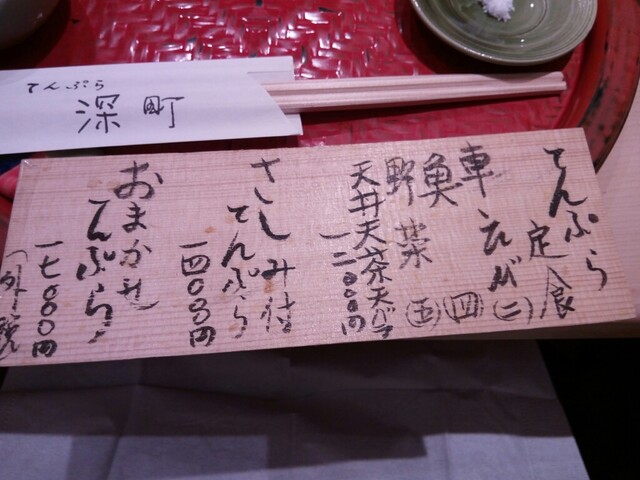 てんぷら
深町
てんぷら
定食
車えび(二)
魚(四)
野菜(五)
天丼天茶天バラ
一二〇〇〇円
さしみ付
てんぷら
一四〇〇〇円
おまかせ
てんぷら
一七〇〇〇円
(外税)